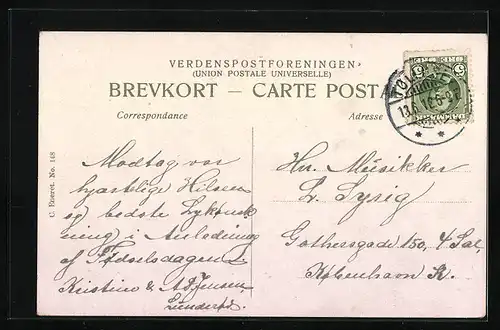 VERDENSPOSTFORENINGEN
(UNION POSTALE UNIVERSELLE)
BREVKORT — CARTE POSTA
Correspondance
Adresse
C. Rostret. No. 148
Modtag vor
hjærtelige Hilsen
og bedste Lykønsk
ning i Anledning
af Fødselsdagen.
Kristine & A. Jensen
Hr. Musikker
L. Sysig
Gothersgade 150, 4 Sal,
København K.
5 5